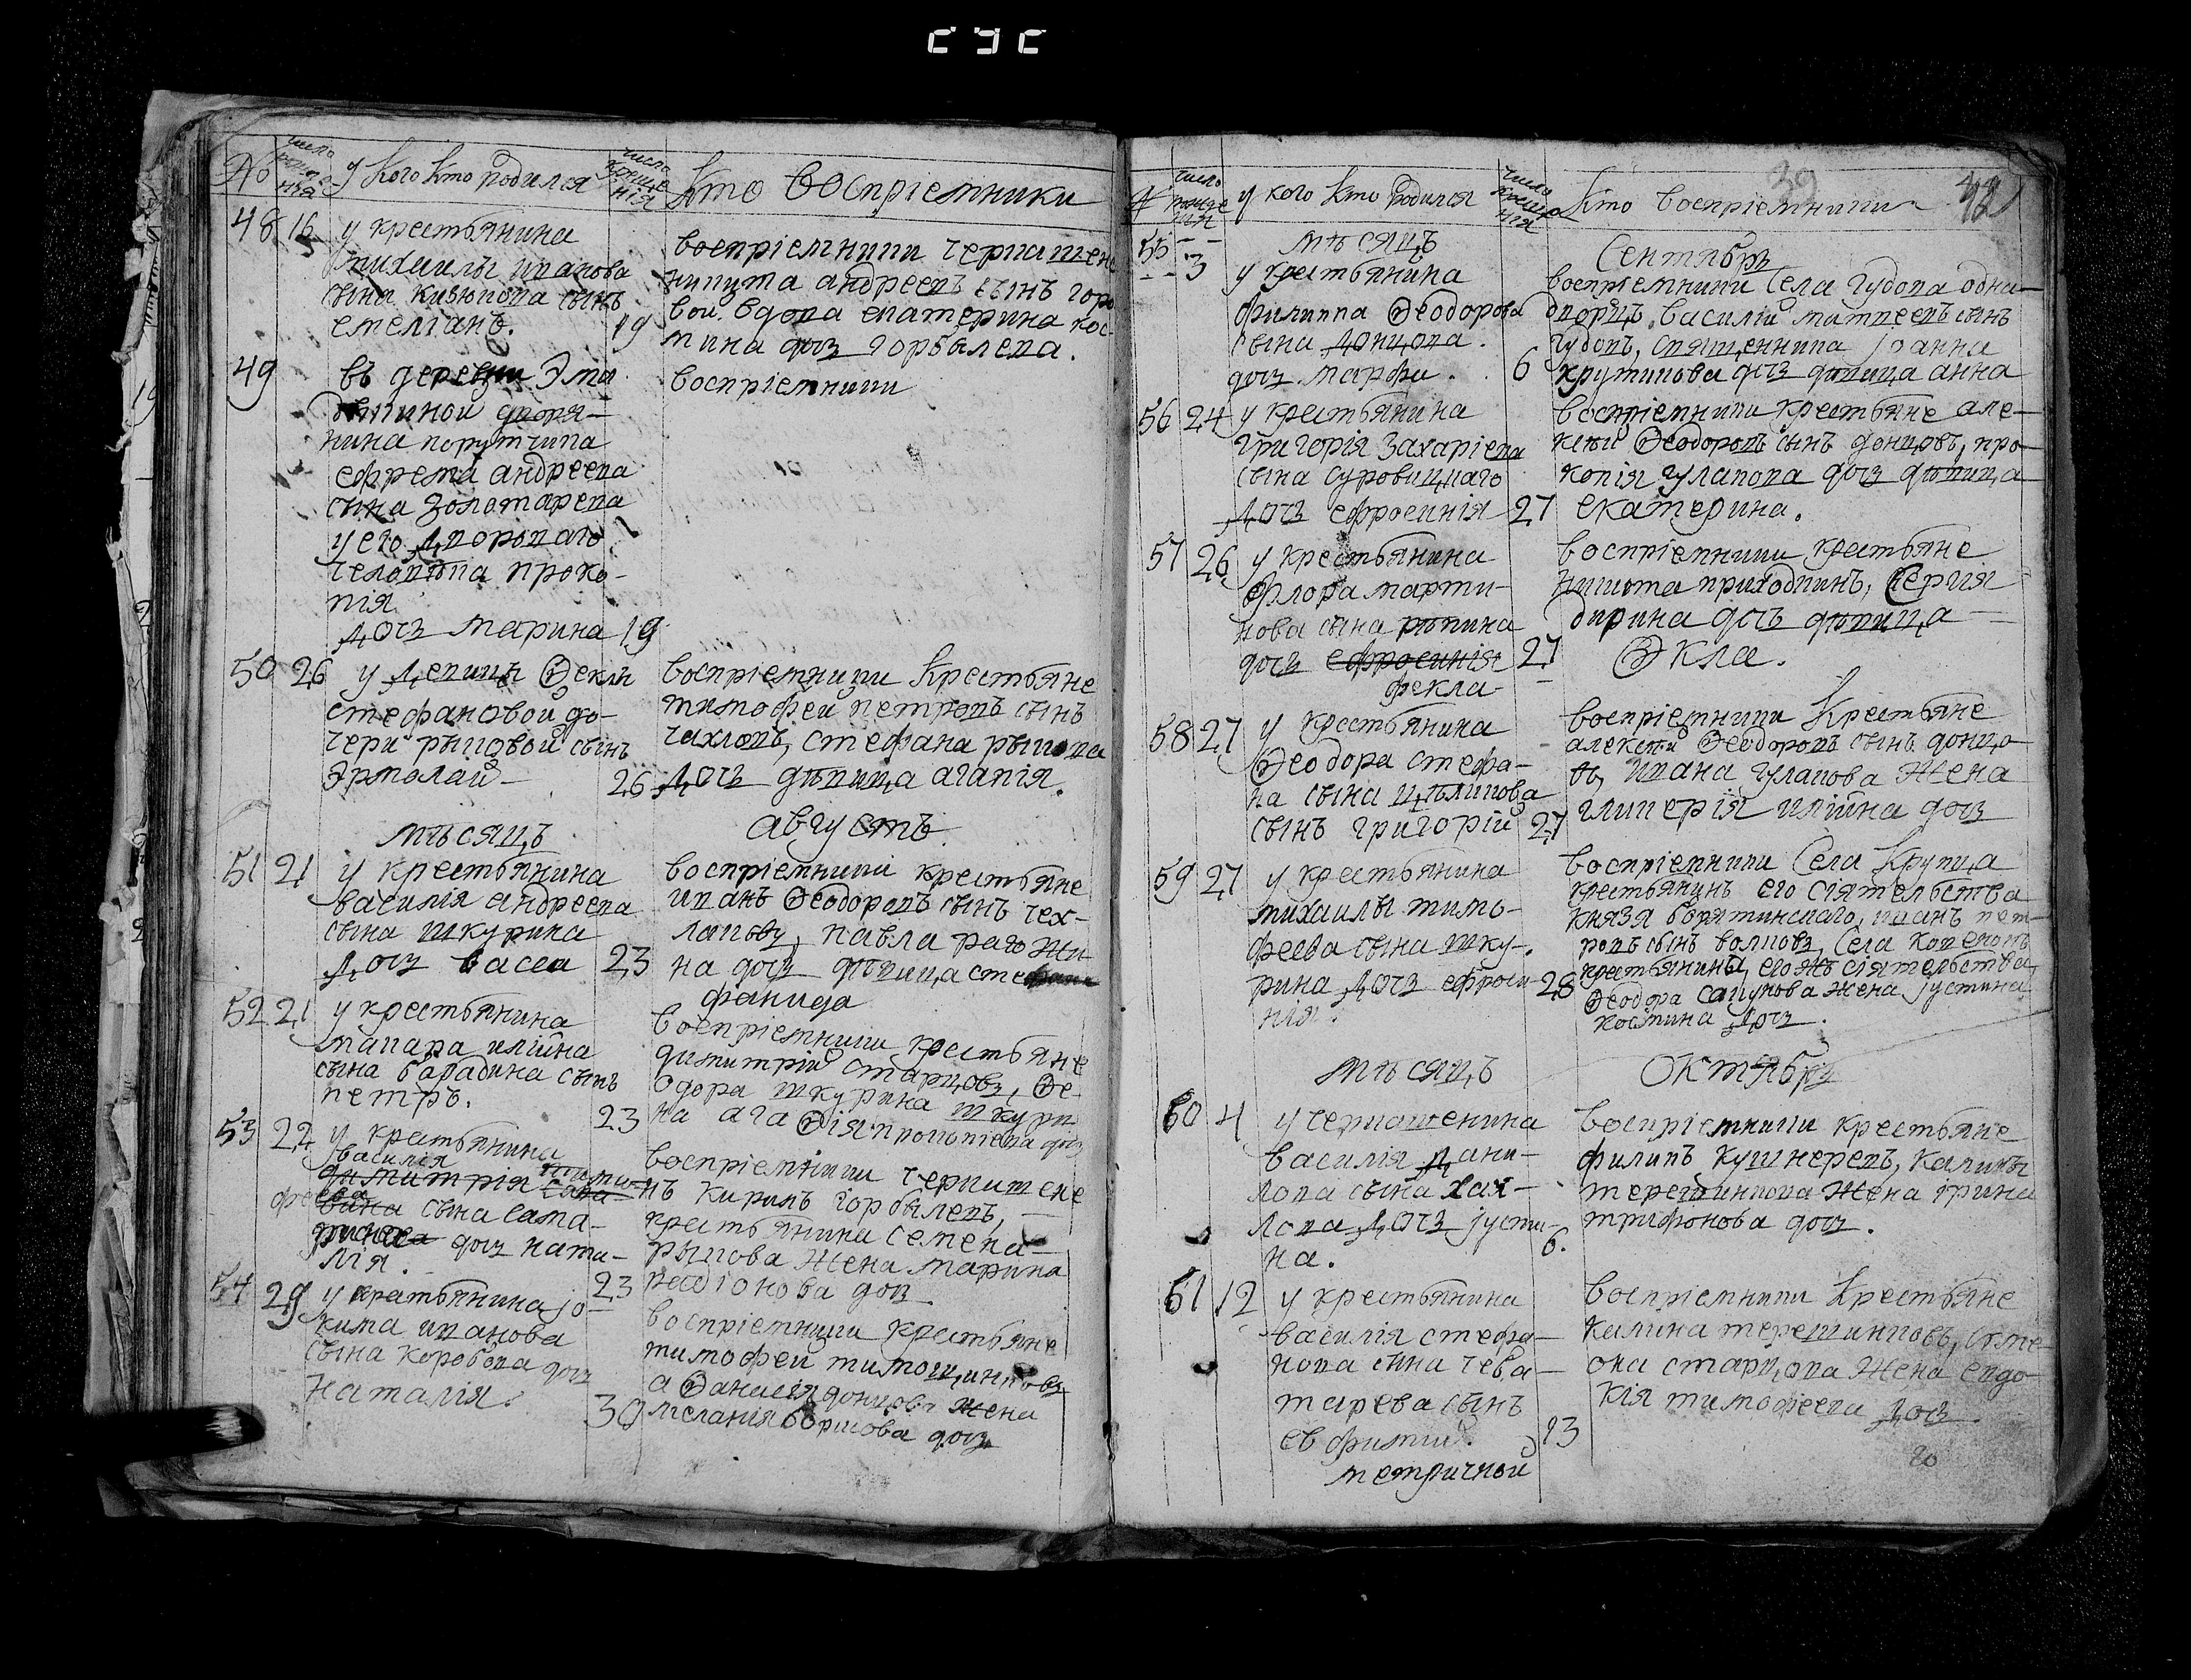 № число рожденія у кого кто родился число крещенія кто воспріемники
48 16 у крестьянина
михаилы иванова
сына кизюпова сынъ
емеліанъ. 19
воспріемники черкашенинъ
никита андреевъ сынъ горо
вой. вдова екатерина кос
тина дочь горбылева.
49 въ деревни
дворя-
нина порутчика
ефрема андреева
сына золотарева
у его дворового
человѣка проко-
пія
дочь марина 19
воспріемники
50 26 у девици Ѳеклы
стефановой до-
чери рыковой сынъ
Эрмолай 26
воспріемники крестьяне
тимофей петровъ сынъ
чахловъ, стефана рыкова
дочь дѣвица агапія.
мѣсяцъ августъ
51 21 у крестьянина
василія андреева
сына шкурина
дочь васса 23
воспріемники крестьяне
иванъ Ѳеодоровъ сынъ чех-
павла
на дочь дѣвица сте
фанида
52 21 у крестьянина
макара илійна
сына барадина сынъ
петръ. 23
воспріемники крестьяне
димитрій старцовъ, Ѳе-
одора шкурина шкури
на агаѲія прокопіева дочь
53 22 у крестьянина
василія
димитрія тимо-
феева
сына сама-
дочь ната-
лія. 23
воспріемники черкашене
нъ кирилъ горбылевъ,
крестьянина семена
рыкова жена марина
родіонова дочь
54 29 у крестьянина іо-
кима иванова
сына коробова дочь
наталія. 30
воспріемники крестьяне
тимофей тимощинковъ
аѲанасія донцова жена
меланія боршова дочь
№ число рожденія у кого кто родился число крещенія кто воспріемники 39
мѣсяцъ Сентябрь
55 3 у крестьянина
филиппа Ѳеодорова
сына донцова.
дочь марфа. 6
воспріемники села гудова одно-
дворецъ василій матвеевъ сынъ
гудовъ, священника іоанна
крутикова дочь дѣвица анна
56 24 у крестьянина
григорія захаріева
сына суровицкаго
дочь ефросинія 27
воспріемники крестьяне але-
ксѣй Ѳеодоровъ сынъ донцовъ, про-
копія гулакова дочь дѣвица
екатерина.
57 26 у крестьянина
флора марти-
нова сына рѣпина
дочь ефросинія 27
фекла
воспріемники крестьяне
никита приходкинъ, Сергія
дирина дочь дѣвица
Ѳекла.
58 27 у крестьянина
Ѳеодора стефа-
на сына цѣликова
сынъ григорій 27
воспріемники крестьяне
алексѣй Ѳеодоровъ сынъ донцо-
въ, ивана гулакова жена
гликерія илійна дочь
59 27 у крестьянина
михаилы тимо-
феева сына шку-
рина дочь ефроси- 28
нія.
воспріемники Села Крупца
крестьянинъ его сіятельства
князя борятинскаго, иванъ пет-
ровъ сынъ волковъ, села
крестьянины его жъ сіятельства,
Ѳеодора сапунова жена іустина
костина дочь.
мѣсяцъ октябрь
60 4 у черкашенина
василія дани-
лова сына хах-
лова дочь іусти- 6.
на.
воспріемники крестьяне
филипъ кушнеревъ, калины
терешинкова жена ірина
трифонова дочь.
61 12 у крестьянина
василія стефа-
нова сына чеба-
тарева сынъ
евфимій. 13
метричной
воспріемники крестьяне
калина терешинковъ, симе-
она старцова жена евдо-
кія тимофеева дочь
20